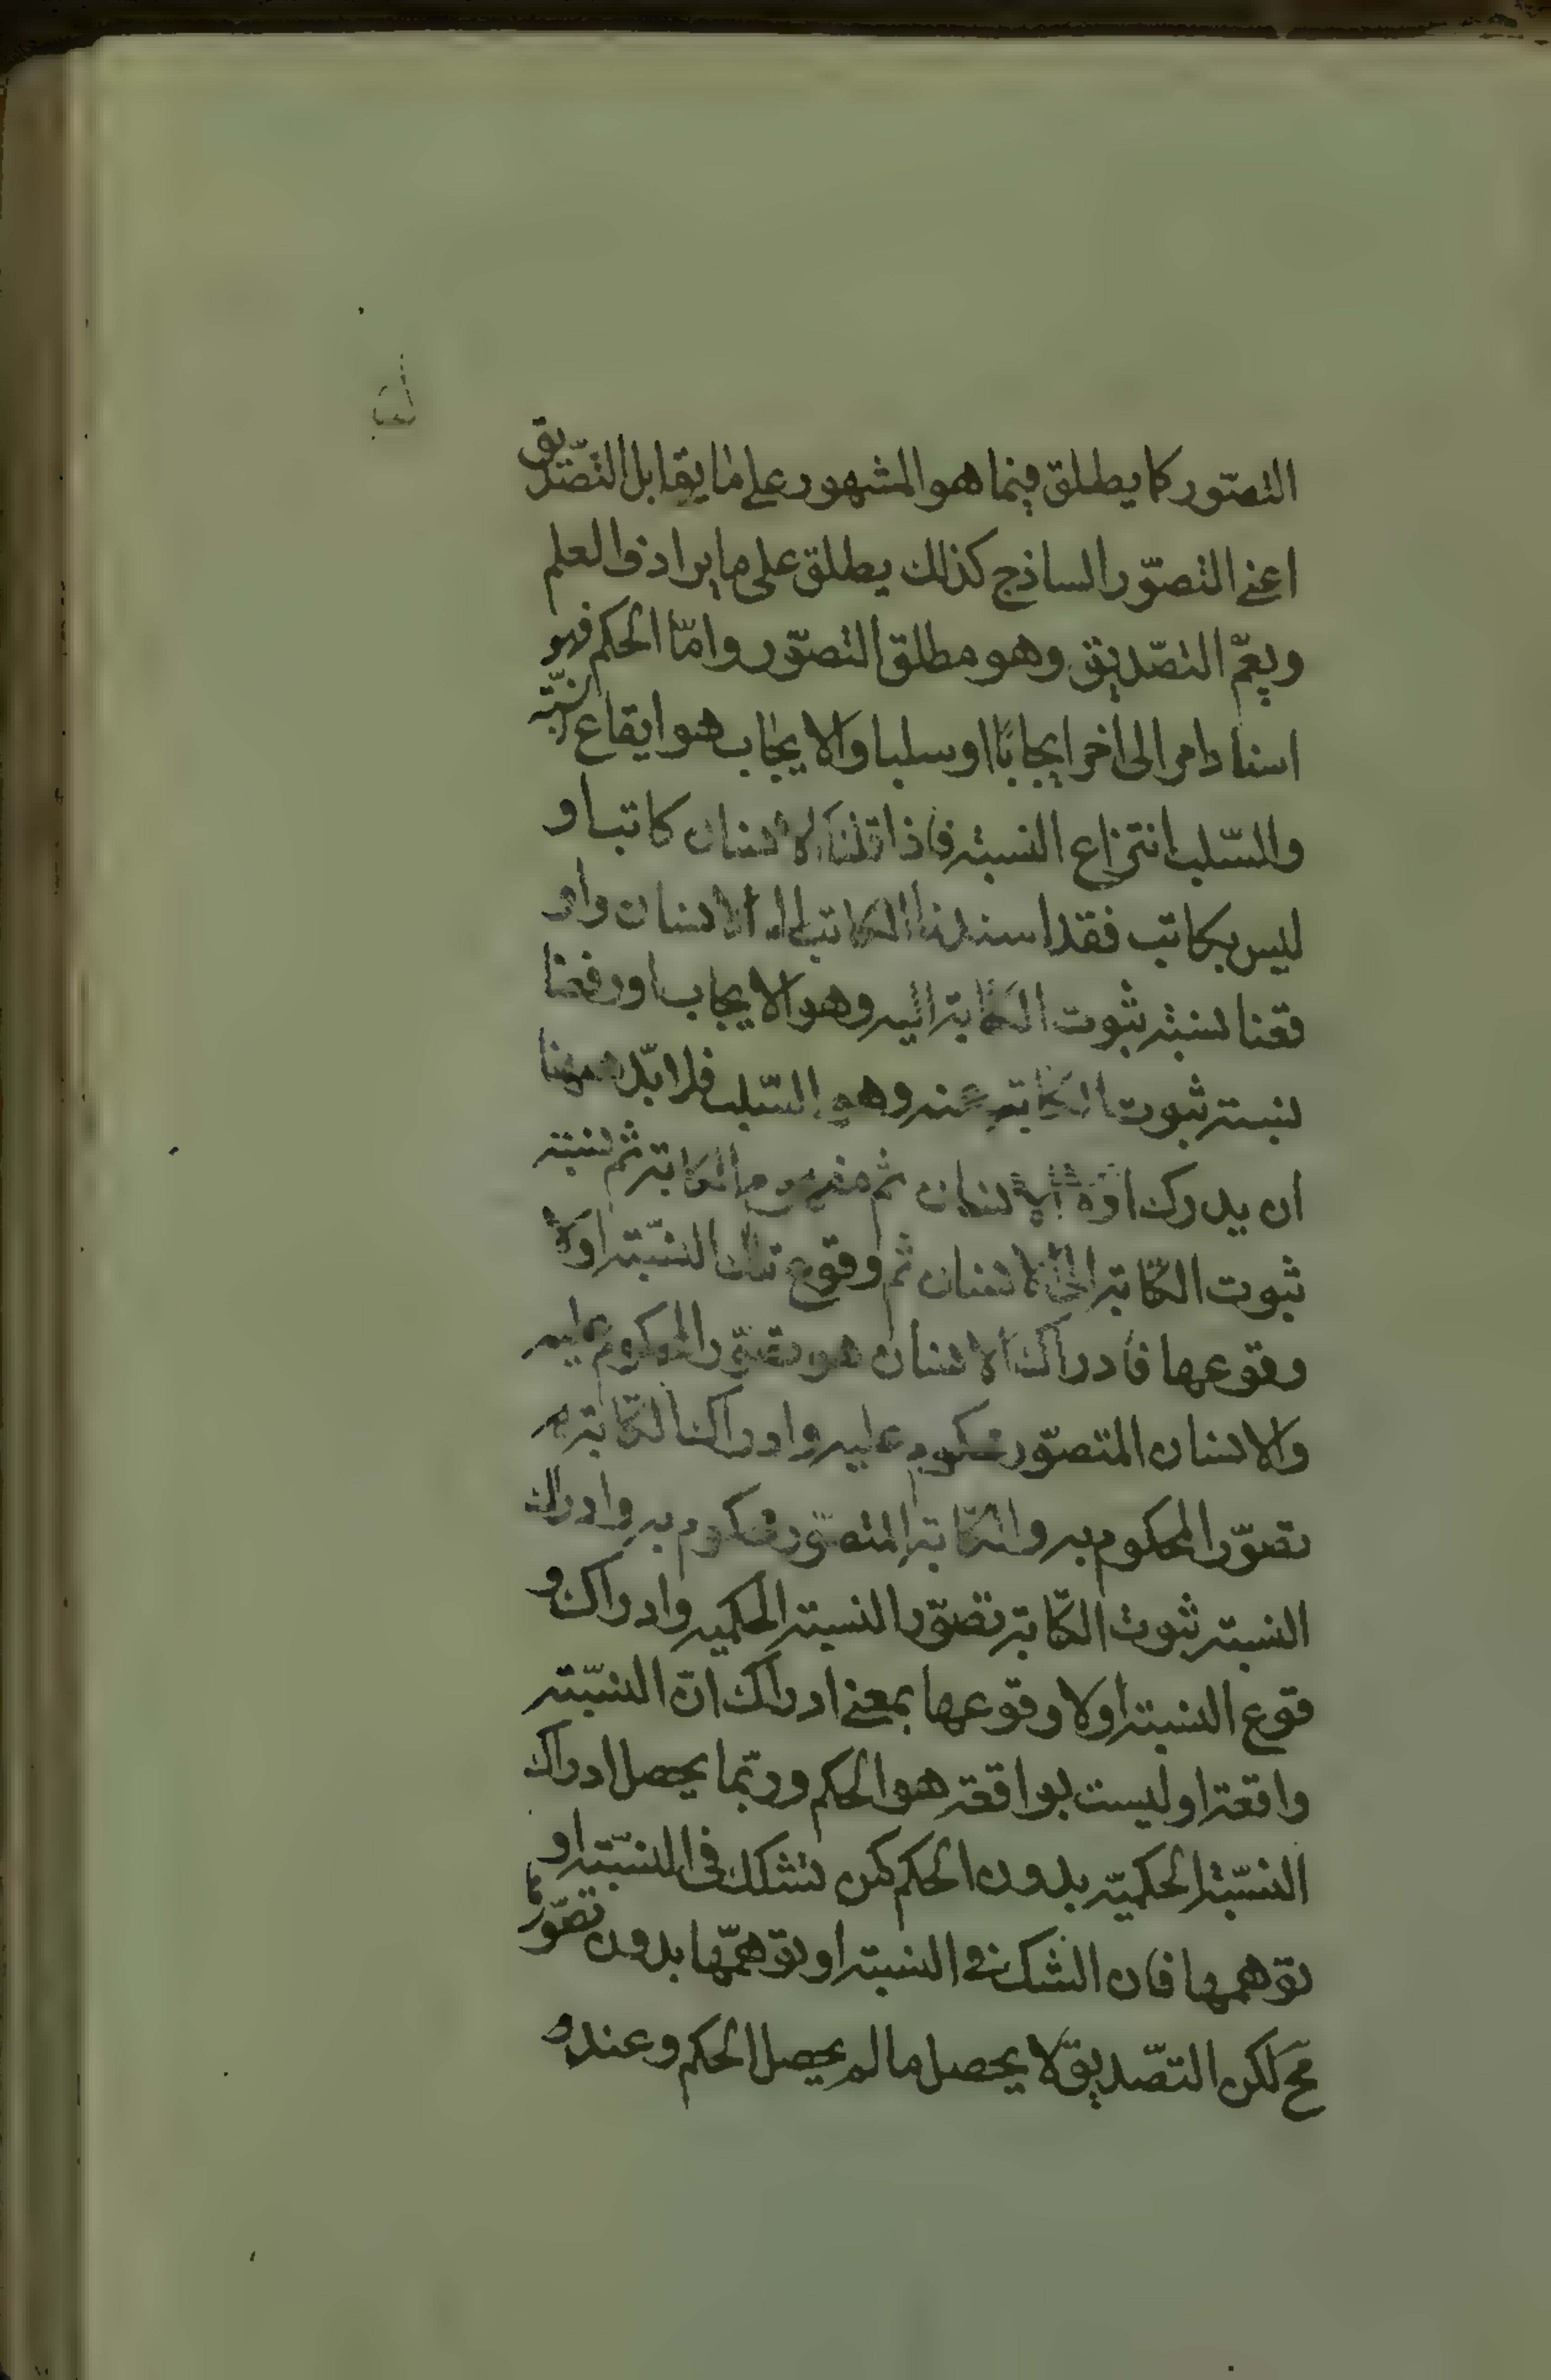 التصوّر كما يطلق فيما هو المشهور على ما يقابل التصّديق
اعنے التصوّر الساذج كذلك يطلق على ما يرادف العلم
ويعمّ التصّديق وهو مطلق التصوّر وامّا الحكم فهو
اسناد امر الى اخر ايجابًا او سلبا والايجاب هو ايقاع النسبة
والسّلب انتزاع النسبة فاذا قلنا الانسان كاتب او
ليس بكاتب فقد اسندنا الكاتب الى الانسان واو
قعنا نسبة ثبوت الكتابة اليه وهو الايجاب او رفعنا
نسبة ثبوت الكتابة عنه وهو السّلب فلا بدّ ههنا
ان يدرك اولا الانسان ثم مفهوم الكتابة ثم نسبة
ثبوت الكتابة الى الانسان ثم وقوع تلك النسّبة اولا
وقوعها فادراك الانسان هو تصوّر المحكوم عليه
والانسان المتصوّر محكوم عليه وادراك الكتابة هو
تصوّر المحكوم به والكتابة المتصوّر محكوم به وادراك
النسبة ثبوت الكتابة تصوّر النسبة الحكميه وادراك و
قوع النسبة اولا وقوعها بمعنے ادراك انّ النسّبة
واقعة او ليست بواقعة هو الحكم وربّما يحصل ادراك
النسّبة الحكميّة بدون الحكم كمن تشكك فى النسّبة او
توهمها فان الشك فے النسبة او توهّمها بدون تصوّرها
مح لكن التصّديق لا يحصل ما لم يحصل الحكم وعند